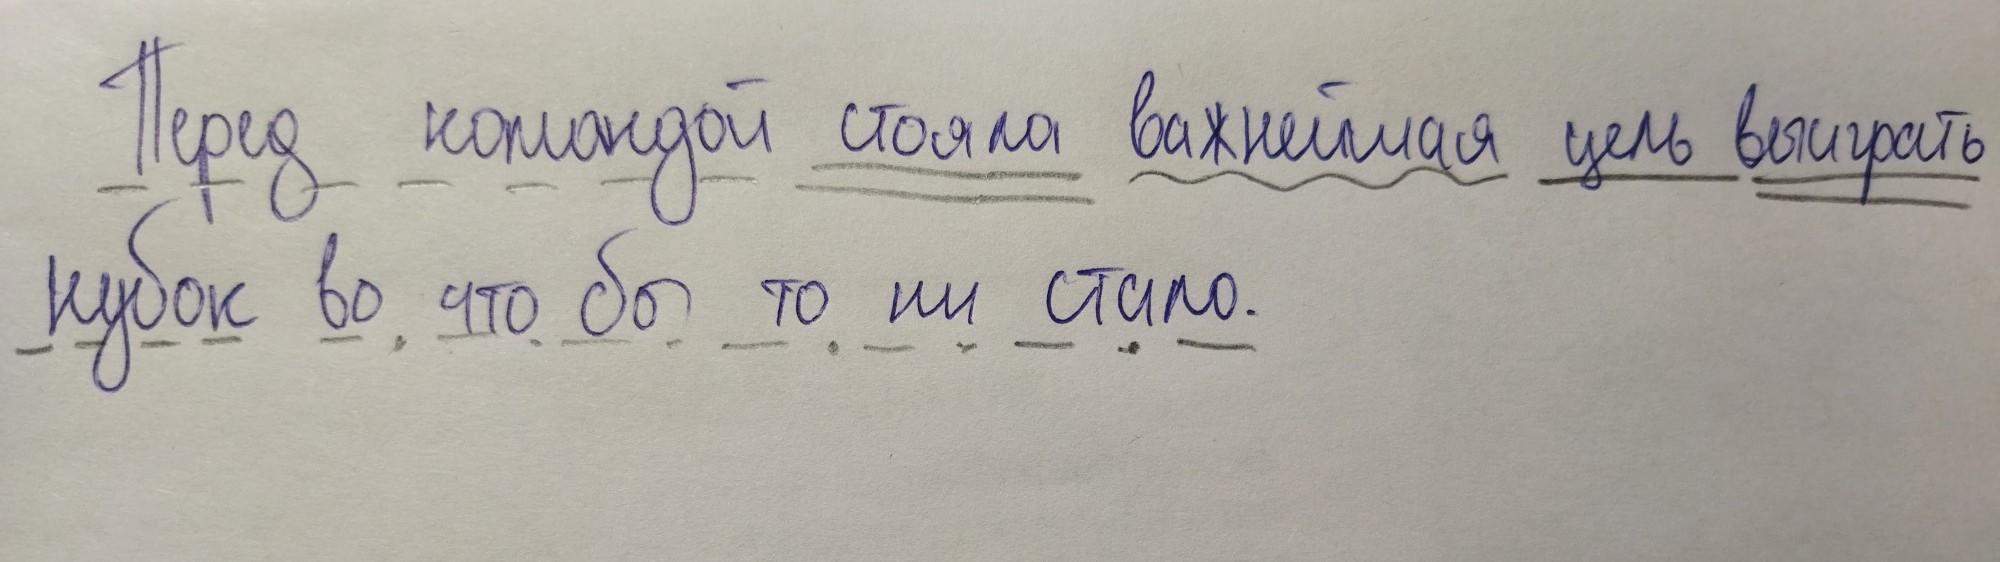 Перед командой стояла важнейшая цель выиграть
кубок во что бы то ни стало.